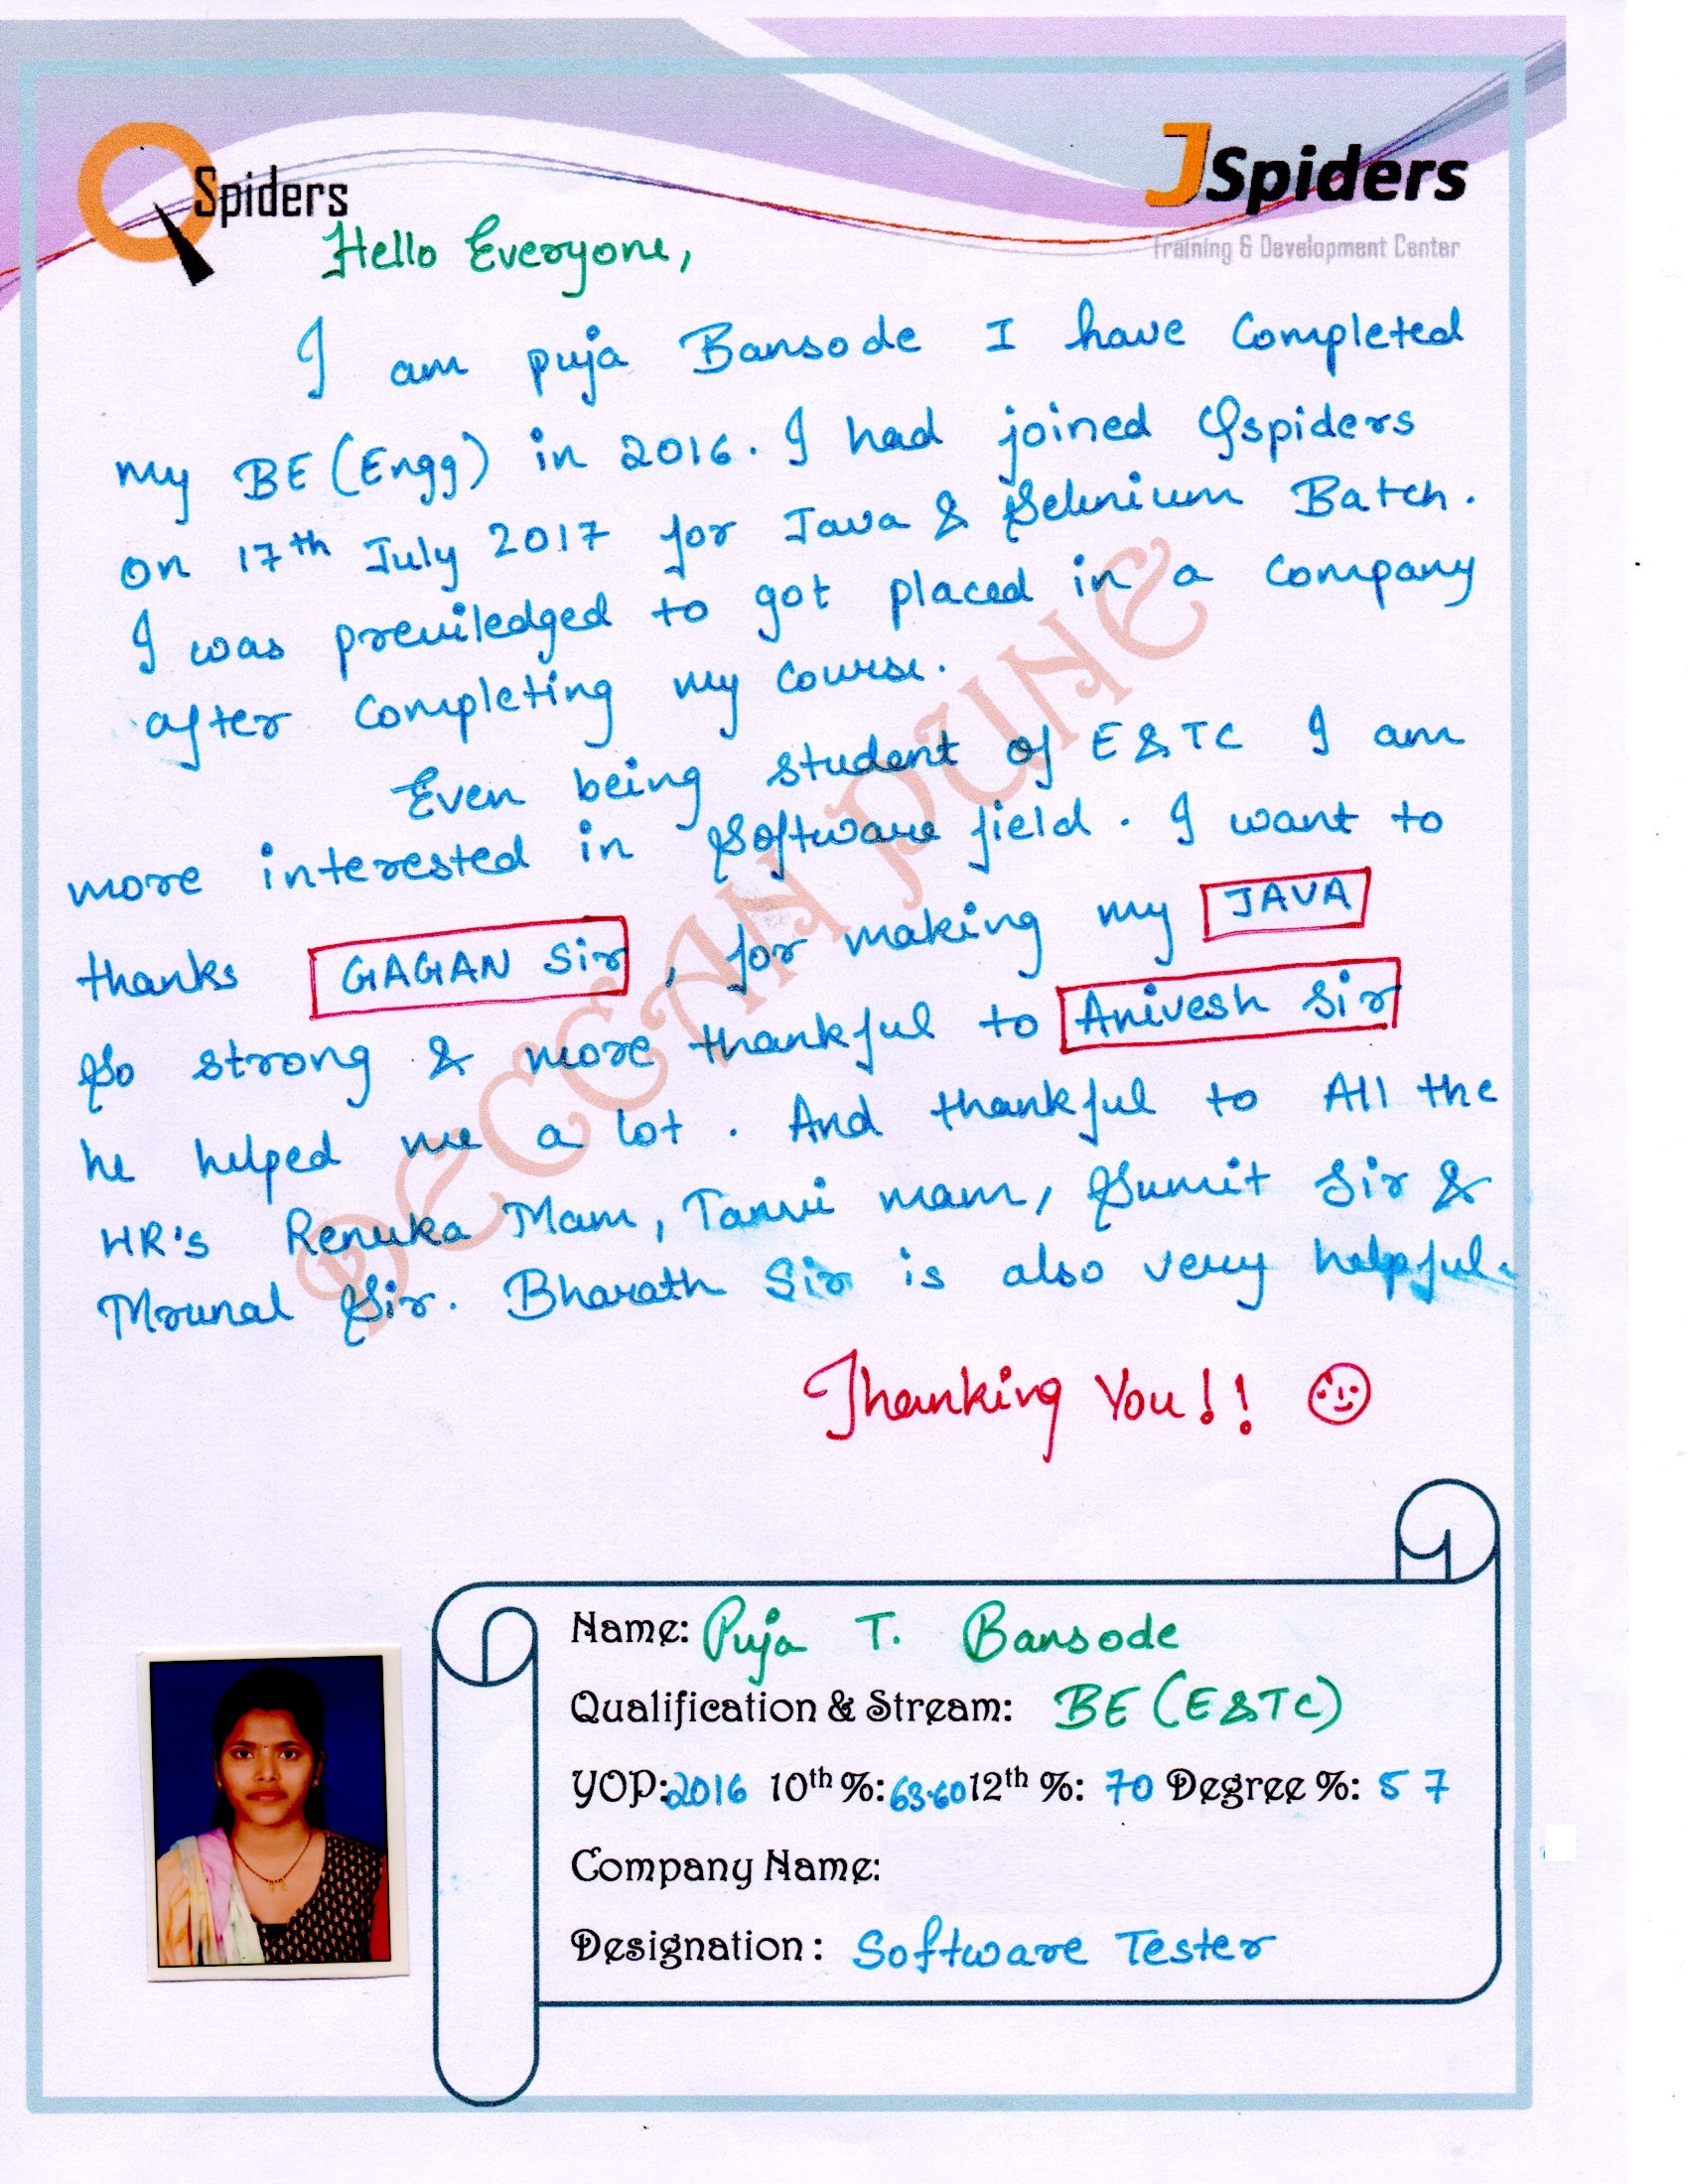 QSpiders
JSpiders
Training & Development Center
Hello Everyone,
I am puja Bansode I have Completed
my BE (Engg) in 2016. I had joined Qspiders
on 17th July 2017 for Java & Selenium Batch.
I was previledged to got placed in a company
after completing my course.
Even being student of E&TC I am
more interested in Software field. I want to
thanks GAGAN Sir, for making my JAVA
So strong & more thankful to Anivesh Sir
he helped me a lot. And thankful to All the
HR's Renuka Mam, Tanvi mam, Sumit Sir &
Mrunal Sir. Bharath Sir is also very helpful.
Thanking You!!
DECCAN PUNE
Name: Puja T. Bansode
Qualification & Stream: BE (E&TC)
YOP: 2016 10th %: 63.60 12th %: 70 Degree %: 57
Company Name:
Designation: Software Tester